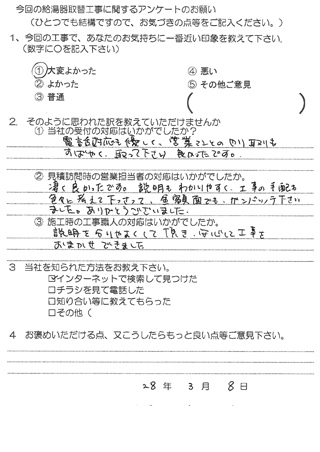 今回の給湯器取替工事に関するアンケートのお願い
(ひとつでも結構ですので、お気づきの点等をご記入ください。)
1、今回の工事で、あなたのお気持ちに一番近い印象を教えて下さい。
(数字に○を記入下さい)
①大変よかった ④悪い
②よかった ⑤その他ご意見
③普通 ( )
2. そのように思われた訳を教えていただけませんか
① 当社の受付の対応はいかがでしたか?
電話対応も優しく、営業さんとのやり取りも
すばやく、取って下さり 良かったです。
② 見積訪問時の営業担当者の対応はいかがでしたか。
凄く良かったです。説明もわかりやすく、工事の手配も
考えて下さって、金額面でも、ガンバッて下さい
ました。ありがとうございました。
③ 施工時の工事職人の対応はいかがでしたか。
説明を分りやすくして頂き、安心して工事を
おまかせできました
3 当社を知られた方法をお教え下さい。
☑インターネットで検索して見つけた
□チラシを見て電話した
□知り合い等に教えてもらった
□その他(
4 お褒めいただける点、又こうしたらもっと良い点等ご意見下さい。
28 年 3 月 8 日